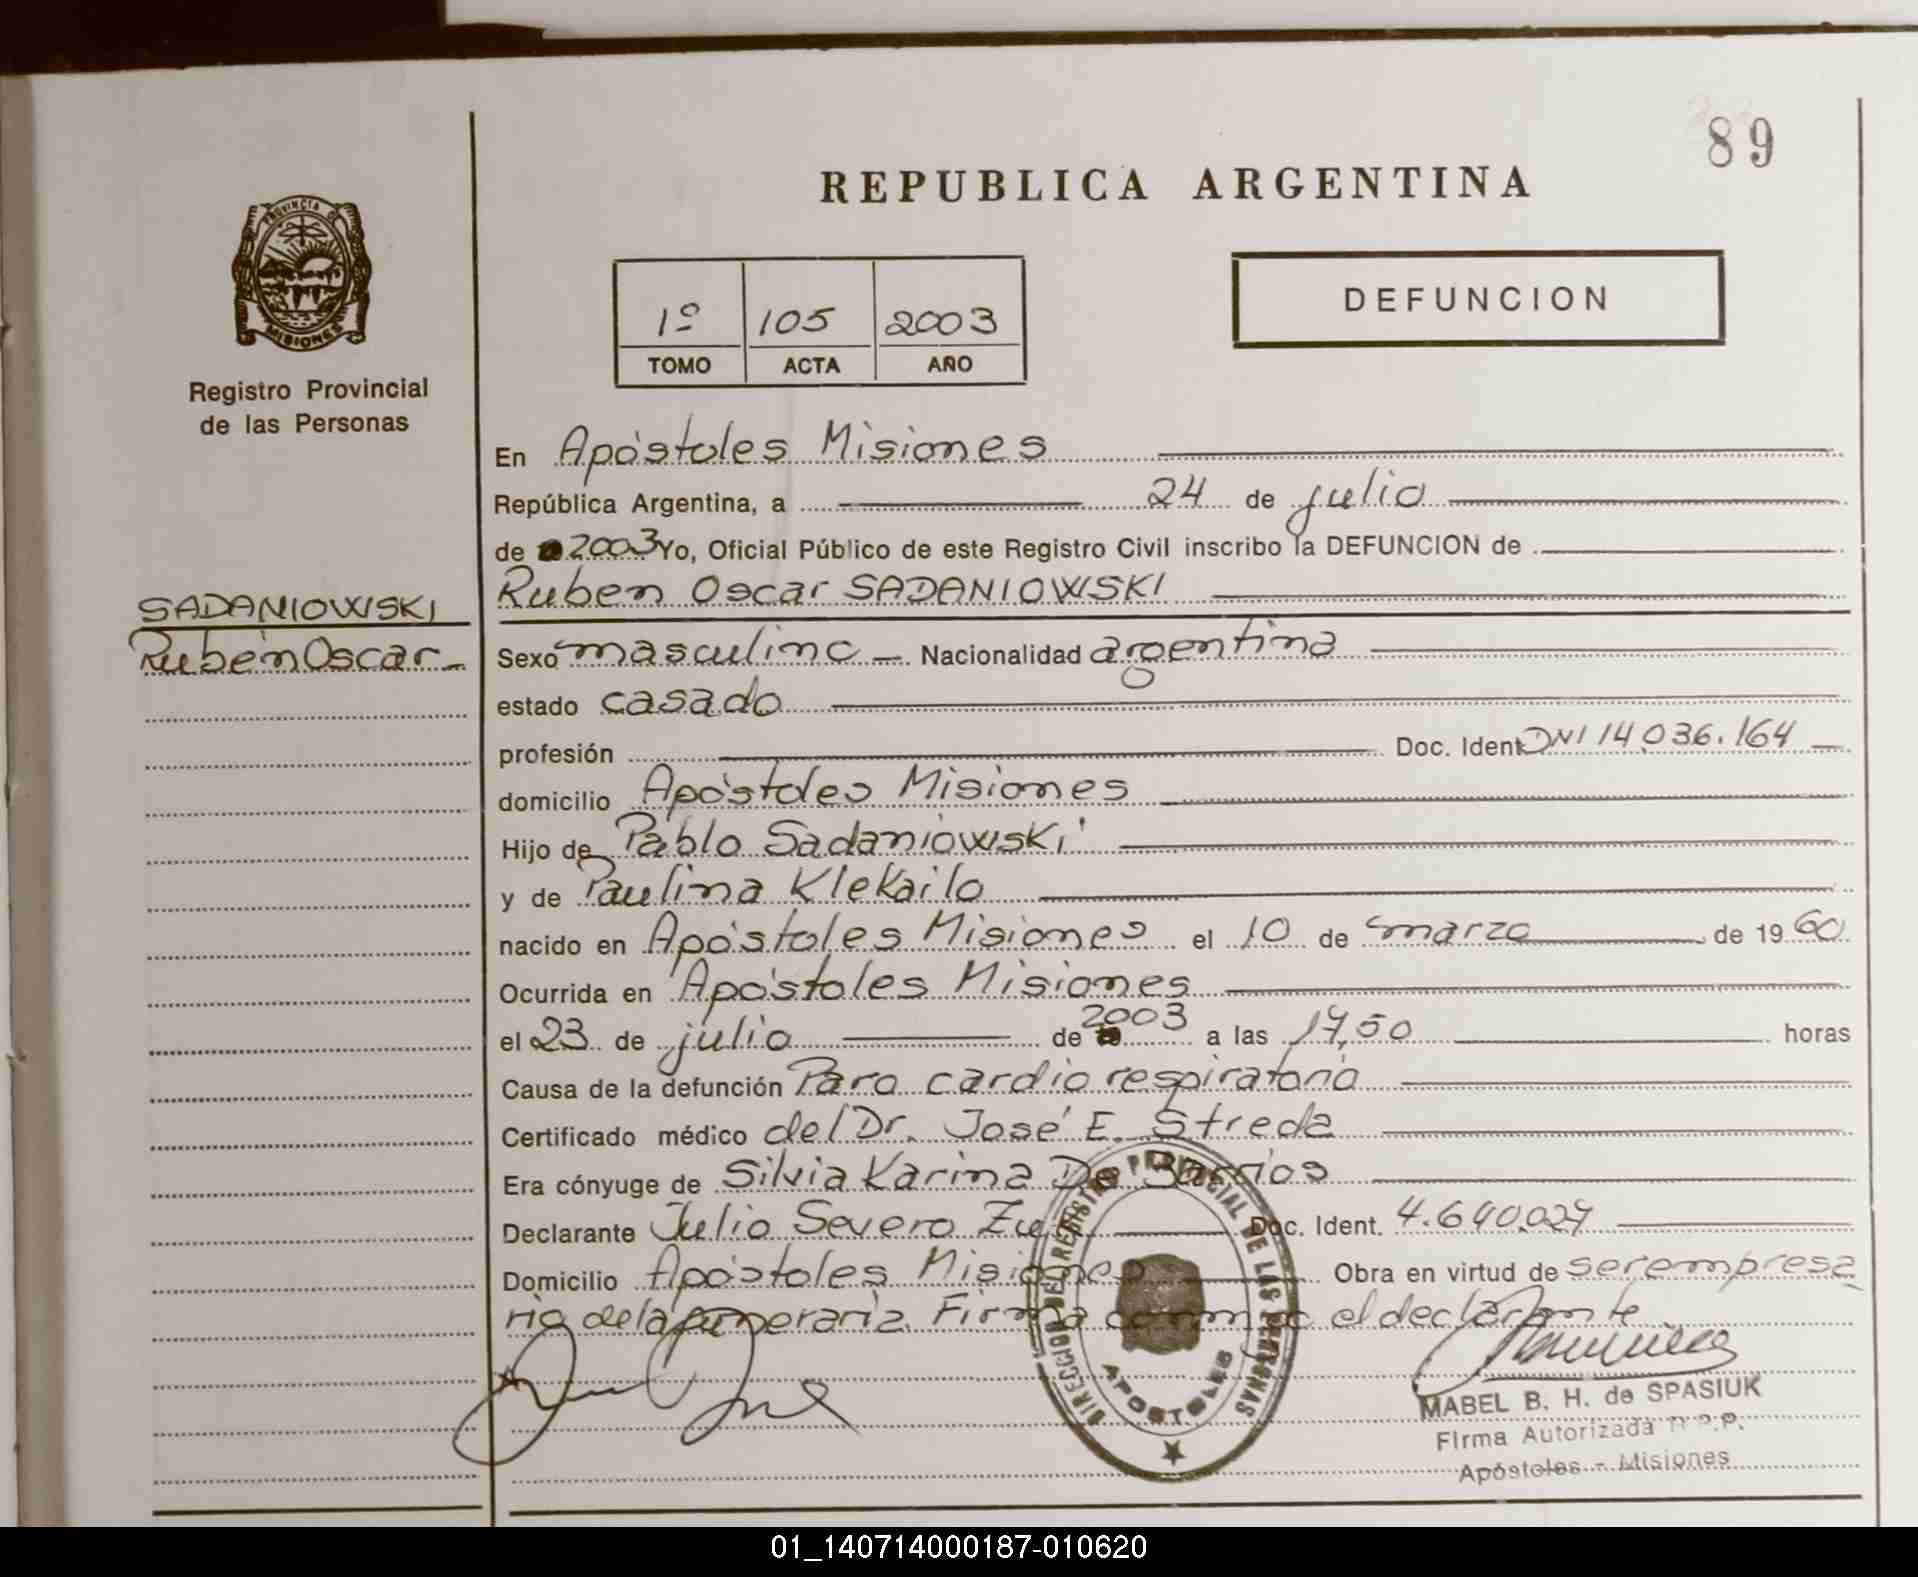 89
REPUBLICA ARGENTINA
PROVINCIA DE
MISIONES
Registro Provincial
de las Personas
1º 105 2003
TOMO ACTA AÑO
DEFUNCION
En Apóstoles Misiones
República Argentina, a 24 de julio
de 2003 Yo, Oficial Público de este Registro Civil inscribo la DEFUNCION de
Ruben Oscar SADANIOWSKI
SADANIOWSKI
Rubén Oscar
Sexo masculino Nacionalidad argentina
estado casado
profesión Doc. Ident. DNI 14.036.164
domicilio Apóstoles Misiones
Hijo de Pablo Sadaniowski
y de Paulina Klekailo
nacido en Apóstoles Misiones el 10 de marzo de 1960
Ocurrida en Apóstoles Misiones
el 23 de julio de 2003 a las 17,50 horas
Causa de la defunción Paro cardio respiratorio
Certificado médico del Dr. José E. Streda
Era cónyuge de Silvia Karina De Barrios
Declarante Julio Severo Doc. Ident. 4.640.027
Domicilio Apóstoles Misiones Obra en virtud de ser empresa
rio de la funeraria Firma conmigo el declarante
DIRECCION DEL REGISTRO PROVINCIAL DE LAS PERSONAS
APOSTOLES
MABEL B. H. de SPASIUK
Firma Autorizada R.P.P.
Apóstoles - Misiones
01_140714000187-010620